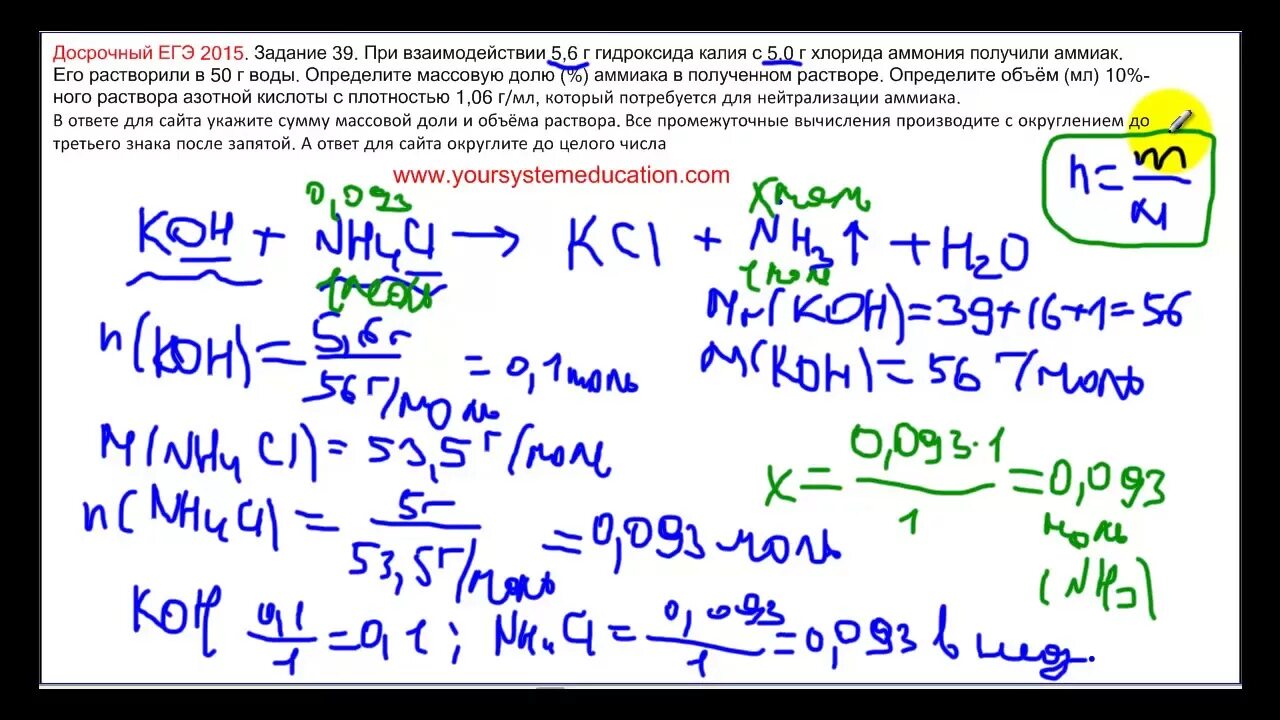 Досрочный ЕГЭ 2015. Задание 39. При взаимодействии 5,6 г гидроксида калия с 5,0 г хлорида аммония получили аммиак.
Его растворили в 50 г воды. Определите массовую долю (%) аммиака в полученном растворе. Определите объём (мл) 10%-
ного раствора азотной кислоты с плотностью 1,06 г/мл, который потребуется для нейтрализации аммиака.
В ответе для сайта укажите сумму массовой доли и объёма раствора. Все промежуточные вычисления производите с округлением до
третьего знака после запятой. А ответ для сайта округлите до целого числа
www.yoursystemeducation.com
n = m / M
0,093 x моль
KOH + NH4Cl → KCl + NH3↑ + H2O
1 моль 1 моль
Mr(KOH) = 39+16+1 = 56
n(KOH) = 5,6г / 56 г/моль = 0,1 моль
M(KOH) = 56 г/моль
M(NH4Cl) = 53,5 г/моль
x = 0,093·1 / 1 = 0,093 моль (NH3)
n(NH4Cl) = 5г / 53,5 г/моль = 0,093 моль
KOH 0,1 / 1 = 0,1; NH4Cl = 0,093 / 1 = 0,093 в нед.